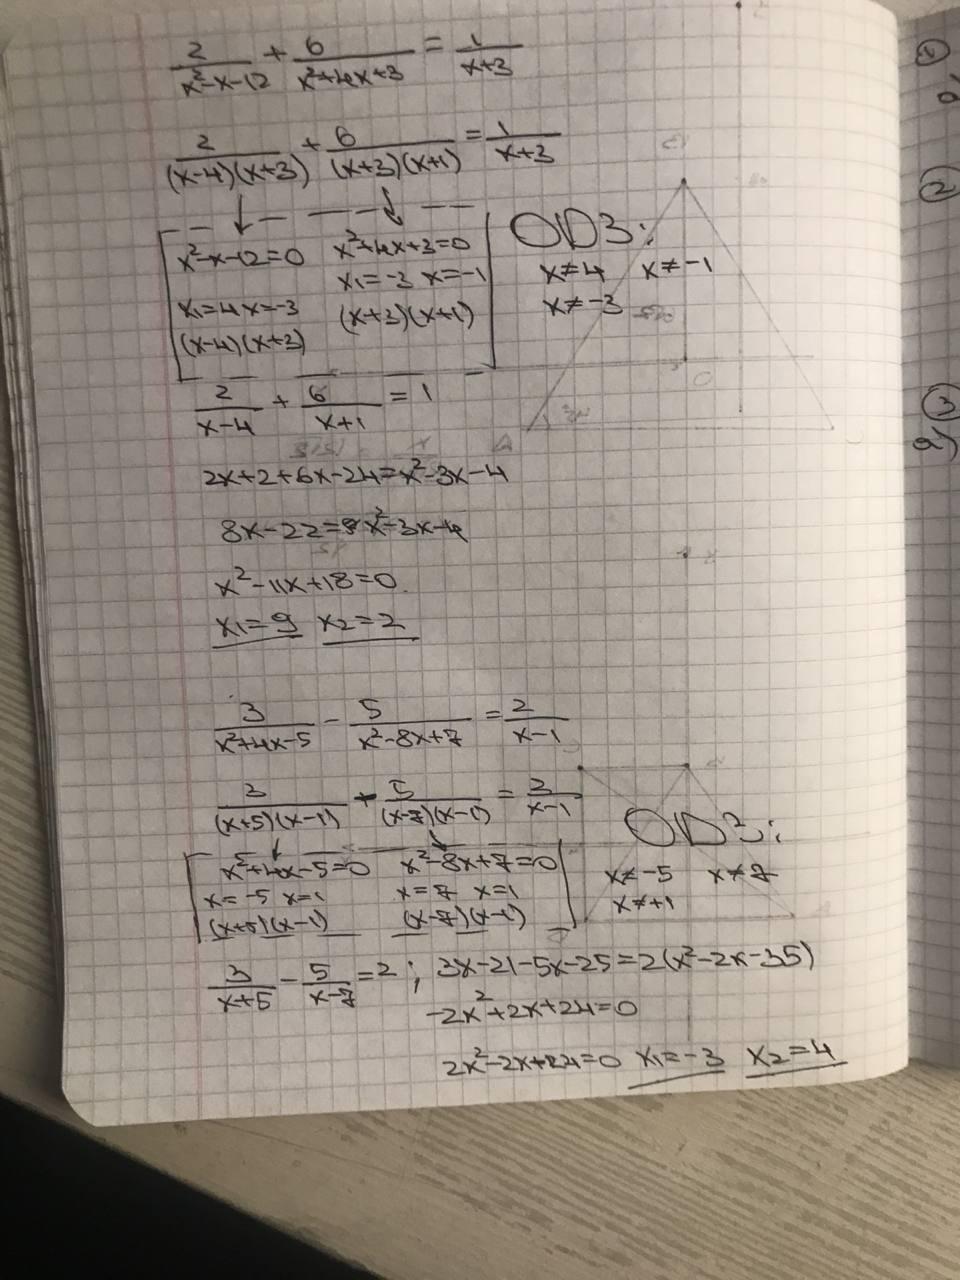 2/(x²-x-12) + 6/(x²+4x+3) = 1/(x+3)
2/((x-4)(x+3)) + 6/((x+3)(x+1)) = 1/(x+3)
x²-x-12=0 x²+4x+3=0
x1=-3 x=-1
x1=4 x=-3 (x+3)(x+1)
(x-4)(x+3)
ОДЗ:
x≠4 x≠-1
x≠-3
2/(x-4) + 6/(x+1) = 1
2x+2+6x-24=x²-3x-4
8x-22=x²-3x-4
x²-11x+18=0
x1=9 x2=2
3/(x²+4x-5) - 5/(x²-8x+7) = 2/(x-1)
3/((x+5)(x-1)) - 5/((x-7)(x-1)) = 2/(x-1)
x²+4x-5=0 x²-8x+7=0
x=-5 x=1 x=7 x=1
(x+5)(x-1) (x-7)(x-1)
ОДЗ:
x≠-5 x≠7
x≠+1
3/(x+5) - 5/(x-7) = 2 ; 3x-21-5x-25=2(x²-2x-35)
-2x²+2x+24=0
2x²-2x+24=0 x1=-3 x2=4
1
2
3
a)